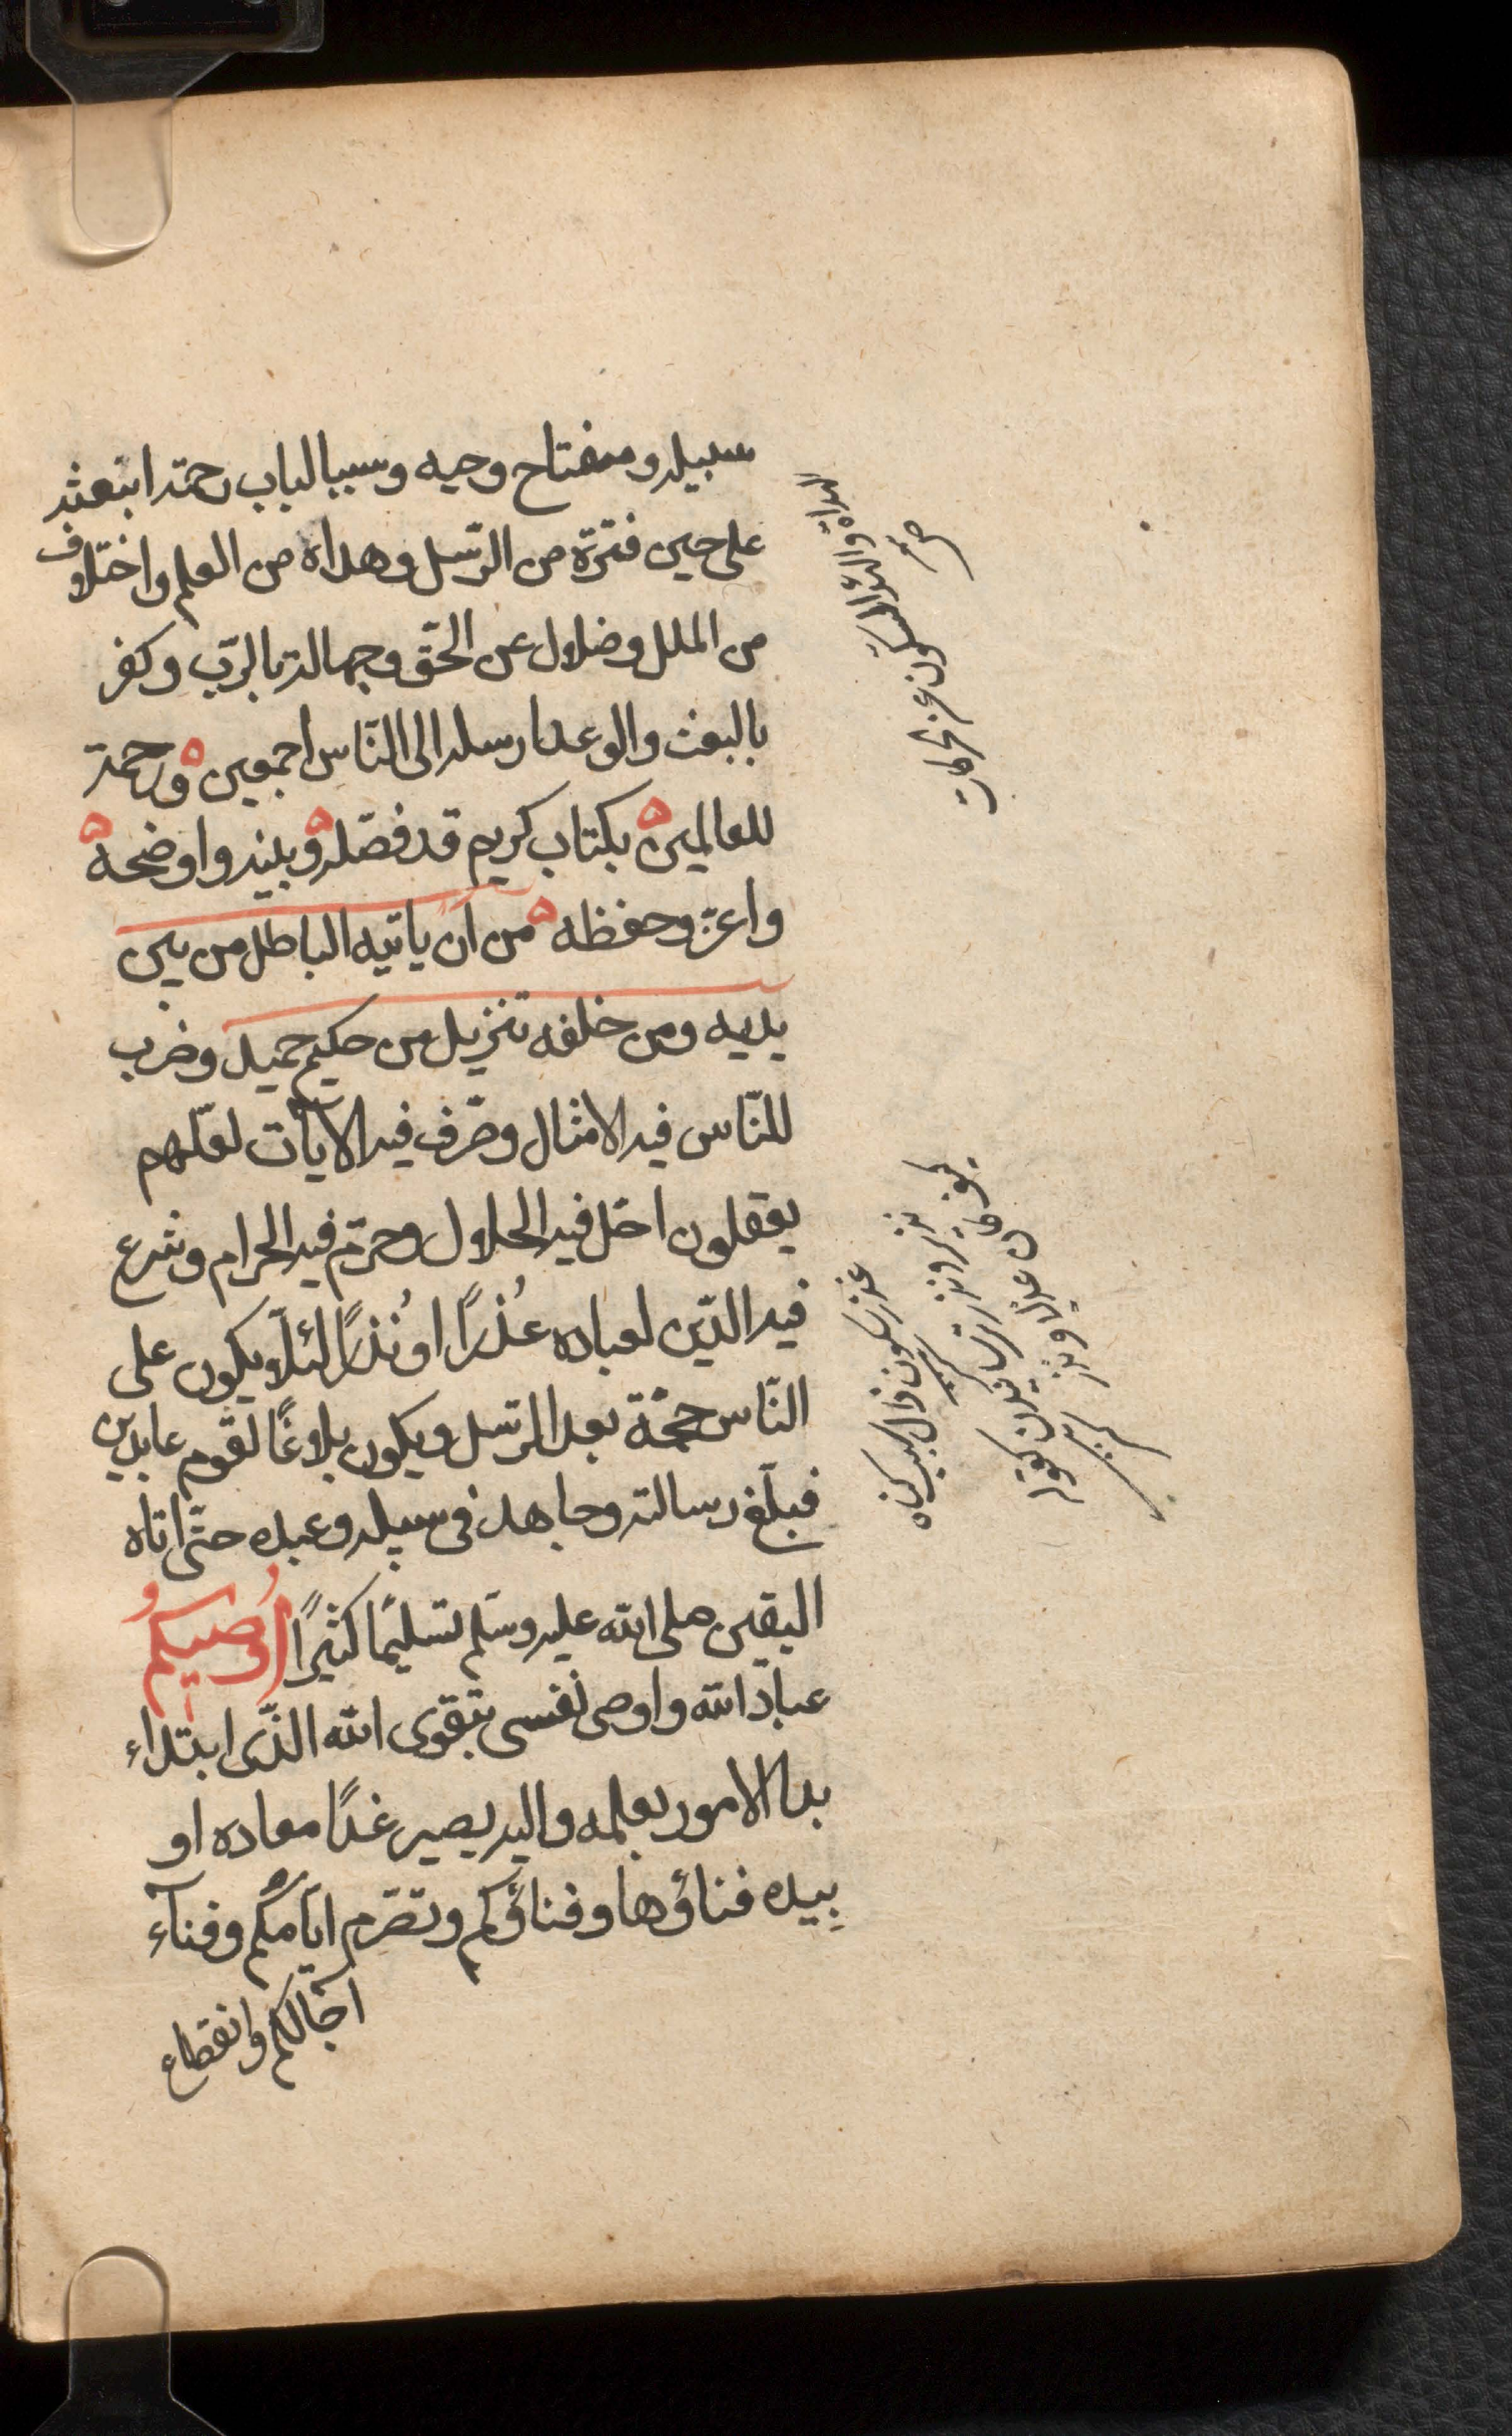 سبيله ومفتاح وحيه وسببا لباب رحمته ابتعثه
على حين فترة من الرّسل وهداه من العلم واختلاف
من الملل وضلال عن الحقّ وجهالة بالرّب وكفر
بالبعث والوعد ارسله الى النّاس اجمعين ورحمة
للعالمين بكتاب كريم قد فصّله وبينه واوضحه
واعزّ وحفظه من ان ياتيه الباطل من بين
يديه ومن خلفه تنزيل من حكيم حميد وضرب
للنّاس فيه الامثال وصّرف فيه الآيات لعلّهم
يعقلون احّل فيه الحلال وحرّم فيه الحرام وشرع
فيه الدّين لعباده عُذرًا او نُذرًا لئلّا يكون على
النّاس حجّة بعد الرّسل ويكون بلاغًا لقوم عابدين
فبلّغ رسالته وجاهد فى سبيله وعبده حتّى اتاه
اليقين صلى الله عليه وسلّم تسليمًا كثيرًا اُوصيكمُ
عبادَ الله واوصى نفسى بتقوى الله الذّى ابتداء
بدا الامور بعلمه واليه يصير غدًا معاده او
بِيده فناؤها وفناؤكم وتصّرم ايّامكُم وفنآء
آجالكم وانقطاع